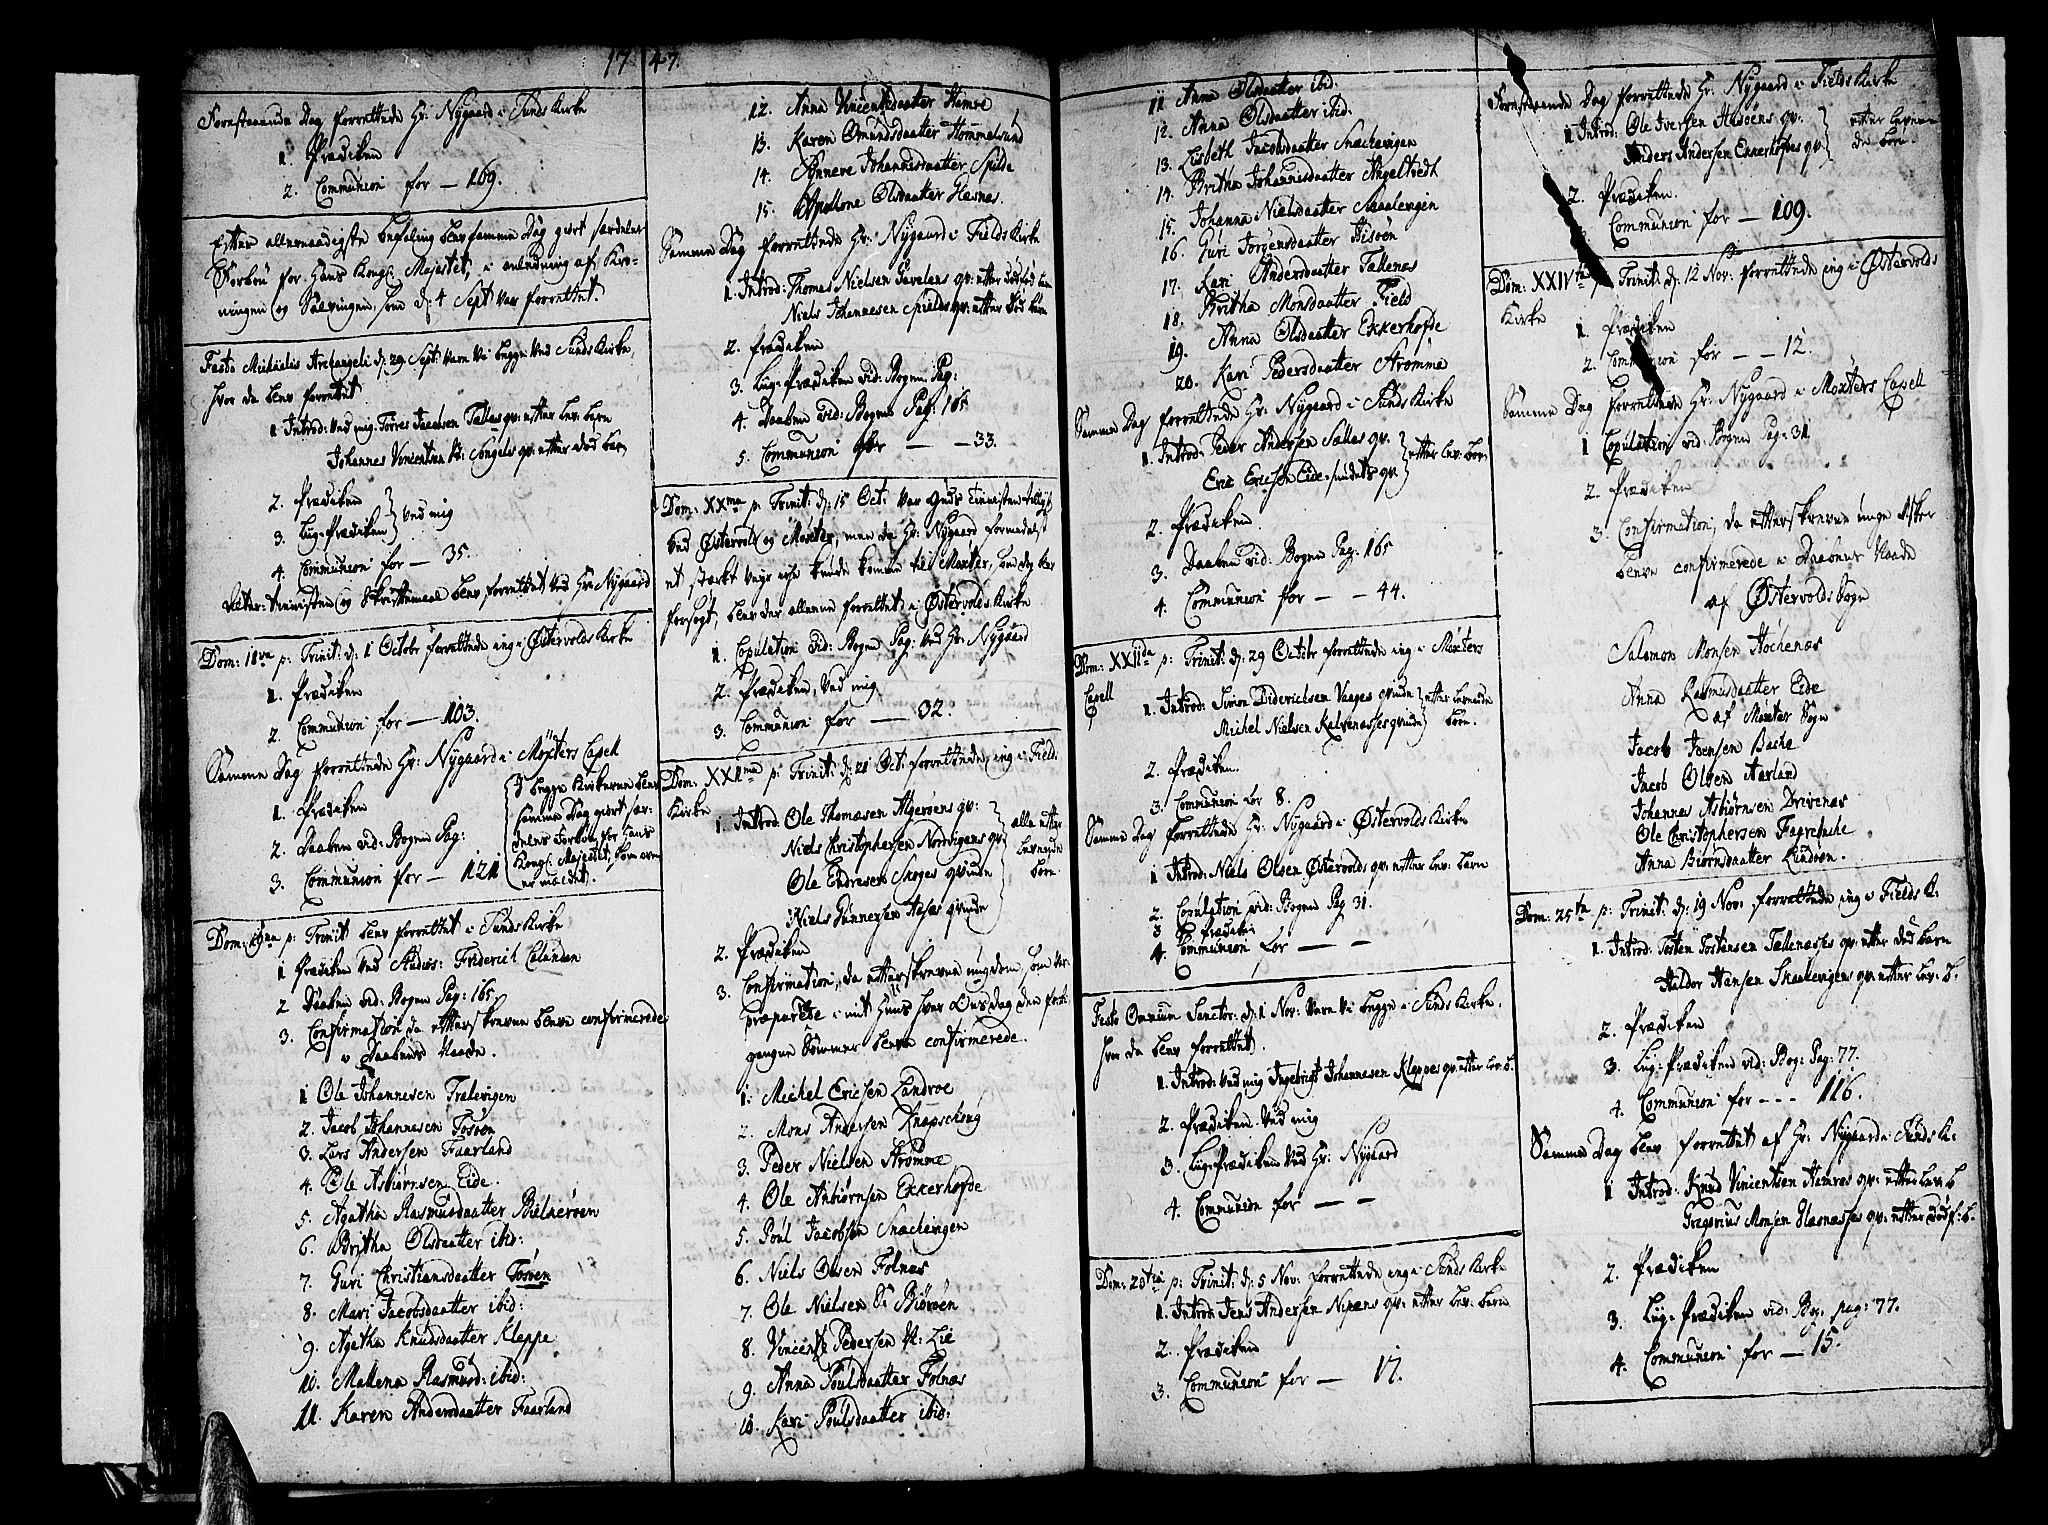 1747.
Fornstaaende Dag forrettede Hr: Nÿgaard i Sunds Kirke
1. Prædiken
2. Communion for — 169.
Efter allernaadigste befaling blev samme Dag giort særdeles
Forbön for Hans Kongl: Majestet, i anledning af Kro-
ningen og Salvingen, som d: 4 Sept var forrettet.
Fest: Michaelis Archangeli d: 29 Sept: vare vi begge ved Sunds Kirke,
hvor da blev forrettet
1 Introd: ved mig Torres Jacobsen Tellæs qv: efter lev: barn
Johannes Vincentsen qv: efter död barn
2. Prædiken
3. Liig-Prædiken } ved mig
4. Communion for — 35.
og Skriftemaal blev forrettet ved Hr: Nÿgaard
Dom: 18va p: Trinit: d: 1 Octobr forrettede ieg i Østervolds Kirke
1. Prædiken
2. Communion for — 103.
Samme Dag forrettede Hr: Nÿgaard i Møxters Capell
1. Prædiken
2. Daaben vid: Bogen Pag:
3. Communion for — 121
I begge Kirkerne blev
samme Dag giort sær-
deles Forbön for Hans
Kongl: Majestet, som oven
er meldet.
Dom: 19na p: Trinit blev forrettet i Sunds Kirke
1 Prædiken ved Studios: Friderich
2 Daaben vid: Bogen Pag: 165
3. Confirmation da efterskrevne bleve confirmerede
i Daabens Naade.
1 Ole Johannesen Tralevigen
2. Jacob Johannesen Tosöen
3. Lars Andersen Faarland
4. Ole Asbiörnsen Eide.
5. Agatha Rasmusdaatter Bielkeröen
6. Britha Olsdaatter ibid:
7. Guri Christiansdaatter Tosöen
8. Mari Jacobsdaatter ibid:
9. Agatha Knudsdaatter Kleppe
10. Mallena Rasmusd: ibid:
11. Karen Andersdaatter Faarland
12. Anna Vincentsdaatter Hamre
13. Karen Omundsdaatter Hommelsund
14. Synneve Johannisdaatter Spilde
15. Apollone Olsdaatter Glesnæs.
Samme Dag forrettede Hr: Nÿgaard i Fields Kirke
1. Introd: Thomas Nielsen Pavelens qv: efter
Niels Johannesen Spieldes qv: efter död barn
2. Prædiken
3. Liig-Prædiken vid: Bogen Pag:
4. Daaben vid: Bogen Pag: 165
5. Communion for — — 33.
Dom: XXma p: Trinit: d: 15 Oct: var Guds tieniste
ved Østervold og Møxter, men da Hr: Nÿgaard formedelst
et stærkt veyr ikke kunde komme til Møxter, som dog var
forsøgt, blev der allene forrettet i Østervolds Kirke
1. Copulation vid: Bogen Pag: ved Hr: Nÿgaard
2. Prædiken, ved mig
3. Communion for — 32.
Dom: XXIma p: Trinit: d: 21 Oct: forrettede ieg i Field
Kirke
1. Introd: Ole Thomasen Algeröens qv:
Niels Christophersen Nordvigens qv:
Ole Endresen Skoges qvinde
Niels Gunnersen Aases qvinde
alle efter
levende
börn.
2. Prædiken
3. Confirmation, da efterskrevne ungdom, som var
præparede i mit Huus hver Onsdag den forbi-
gangne Sommer bleve confirmerede.
1: Michel Ericsen Landroe
2. Mons Andersen Knapschoug
3. Peder Nielsen Strömme
4. Ole Anbiörnsen Ekkerhofde
5. Poul Jacobsen Snachevigen
6. Niels Olsen Folnæs
7. Ole Nielsen Biöröen
8. Vincents Pedersen Lie
9. Anna Poulsdaatter Folnæs
10. Kari Poulsdaatter ibid:
11 Anna Olsdaatter ibid:
12. Anna Olsdaatter ibid:
13. Lisbeth Jacobsdaatter Snachevigen
14. Britha Johannisdaatter Angeltvedt
15. Johanna Nielsdaatter Skaalevigen
16. Guri Jörgensdaatter Tisöen
17. Kari Andersdaatter Tællenæs
18. Britha Monsdaatter Field
19. Anna Olsdaatter Ekkerhofde
20. Kari Pedersdaatter Strömme
Samme Dag forrettede Hr: Nÿgaard i Sunds Kirke
1. Introd: Peder Andersen Tællæs qv:
Eric Ericsen Eide-sundets qv: } efter lev: börn
2. Prædiken
3. Daaben vid: Bogen Pag: 165
4. Communion for — — 44.
Dom: XXIIda p: Trinit: d: 29 Octobr forrettede ieg i Møxters
Capell
1. Introd: Simon Diderichsen Vaages qvinde
Michel Nielsen Kalvenæsses qvinde } efter levende börn.
2. Prædiken.
3. Communion for 8.
Samme Dag forrettede Hr: Nÿgaard i Østervolds Kirke
1 Introd: Niels Olsen Østervolds qv: efter lev: barn
2. Copulation vid: Bogen Pag 31.
3 Prædiken
4. Communion for — —
Festo Omnium Sanctor: d: 1 Nov: vare vi begge i Sunds Kirke,
hvor da blev forrettet.
1. Introd: ved mig Ingebrigt Johannesen Kleppes qv: efter lev: b.
2. Prædiken ved mig
3. Liig-Prædiken ved Hr: Nÿgaard
4. Communion for — —
Dom: 23tia p: Trinit: d: 5 Nov: forrettede ieg i Sunds Kirke
1. Introd: Jens Andersen Nipens qv: efter lev: barn
2. Prædiken
3. Communion for — 17.
Fornstaaende Dag forrettede Hr: Nÿgaard i Fields Kirke
1 Introd: Ole Iversen Husöens qv:
Anders Andersen Ekkerhofdes qv: } efter levende börn.
2. Prædiken
Communion for — 109.
Dom: XXIVta p: Trinit: d: 12 Nov: forrettede ieg i Østervolds
Kirke
1. Prædiken
2. Communion for — — 12.
Samme Dag forrettede Hr: Nÿgaard i Møxters Capell
1 Copulation vid: Bogen Pag: 31
2. Prædiken
3. Confirmation, da efterskrevne unge
bleve confirmerede i Daabens Naade
af Østervolds Sogn
Salamon Monsen Höchenæs
Anna Rasmusdaatter Eide
af Møxter Sogn
Jacob Joensen Bache
Jacob Olsen Aarland
Johannes Asbiörnsen Drivenæs
Ole Christophersen Fagrebache
Anna Biörnsdaatter Lundöen.
Dom: 25ta p: Trinit: d: 19 Nov: forrettede ieg i Fields K.
1. Introd: Tosten Tostensen Tællenæsses qv: efter död barn
Haldor Hansen Skaalevigens qv: efter lev: b.
2. Prædiken
3. Liig-Prædiken vid: Bog: Pag: 77.
4. Communion for - - - 116.
Samme Dag blev forrettet af Hr: Nÿgaard i Sunds K:
1 Introd: Knud Vincentsen Hamres qv: efter lev: b
Gregorius Monsen Glesnæsses qv: efter död f: b.
2. Prædiken
3. Liig-Prædiken vid: Bog: pag: 77.
4. Communion for — 15.